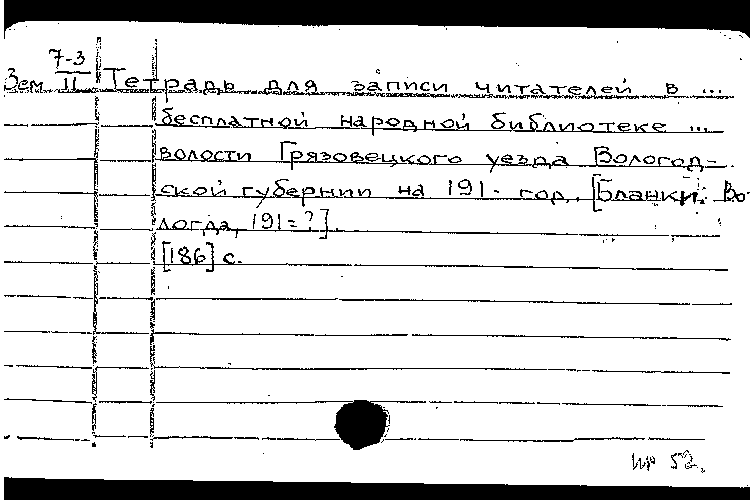 7-3
Зем II Тетрадь для записи читателей в ...
бесплатной народной библиотеке ...
волости Грязовецкого уезда Вологод-
ской губернии на 191- год. [Бланки. Во-
логда, 191-?].
[186] с.
52.